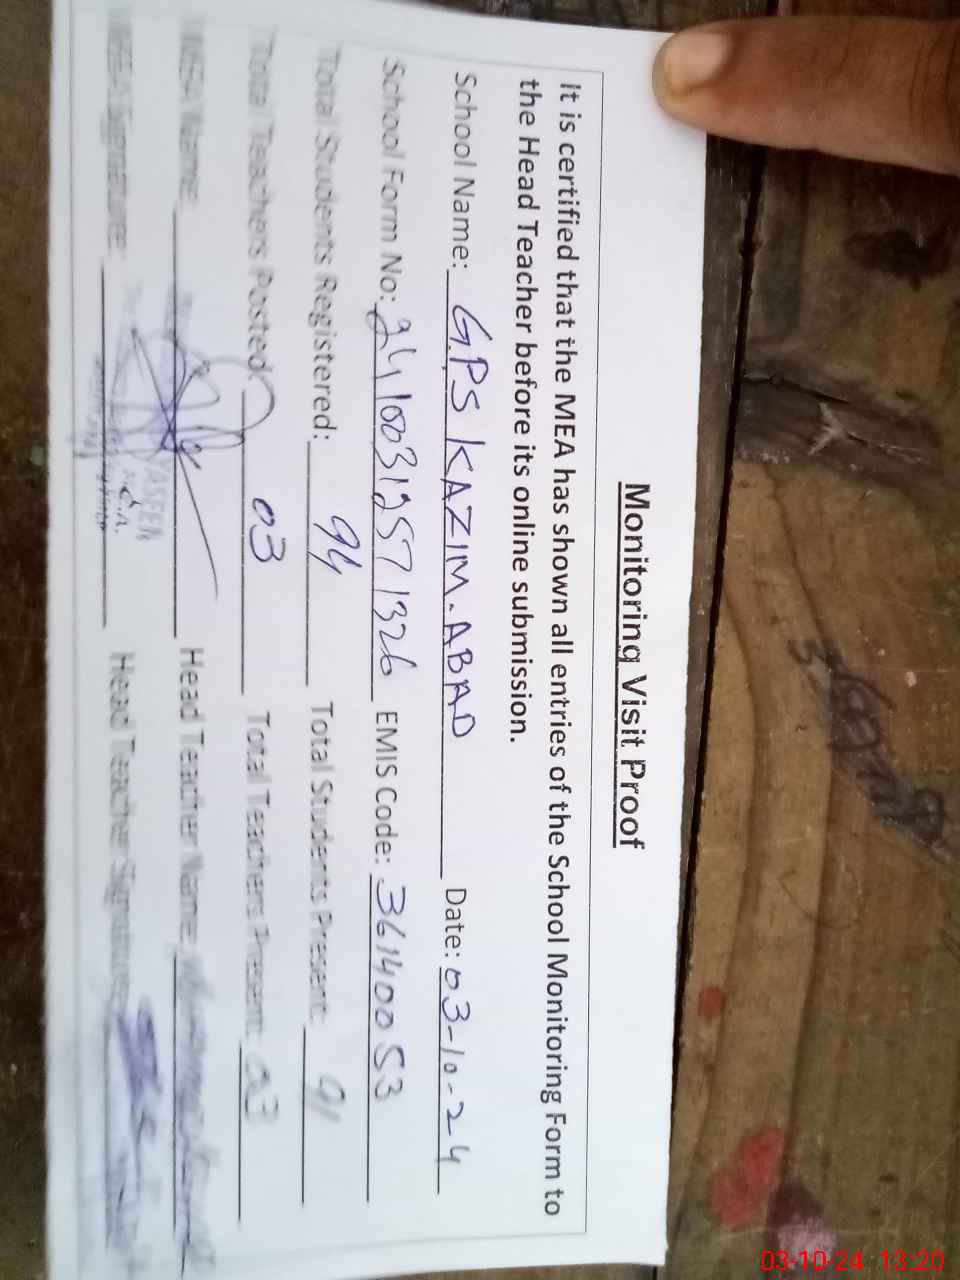 Monitoring Visit Proof
It is certified that the MEA has shown all entries of the School Monitoring Form to
the Head Teacher before its online submission.
School Name: G.PS KAZIM.ABAD Date: 03-10-24
School Form No: EMIS Code: 36140053
Total Students Registered: 94 Total Students Present: 91
Total Teachers Posted: 03 Total Teachers Present: 03
MEA Name: Head Teacher Name:
MEA Signature: YASEEN Head Teacher Signature:
03-10-24 13:20